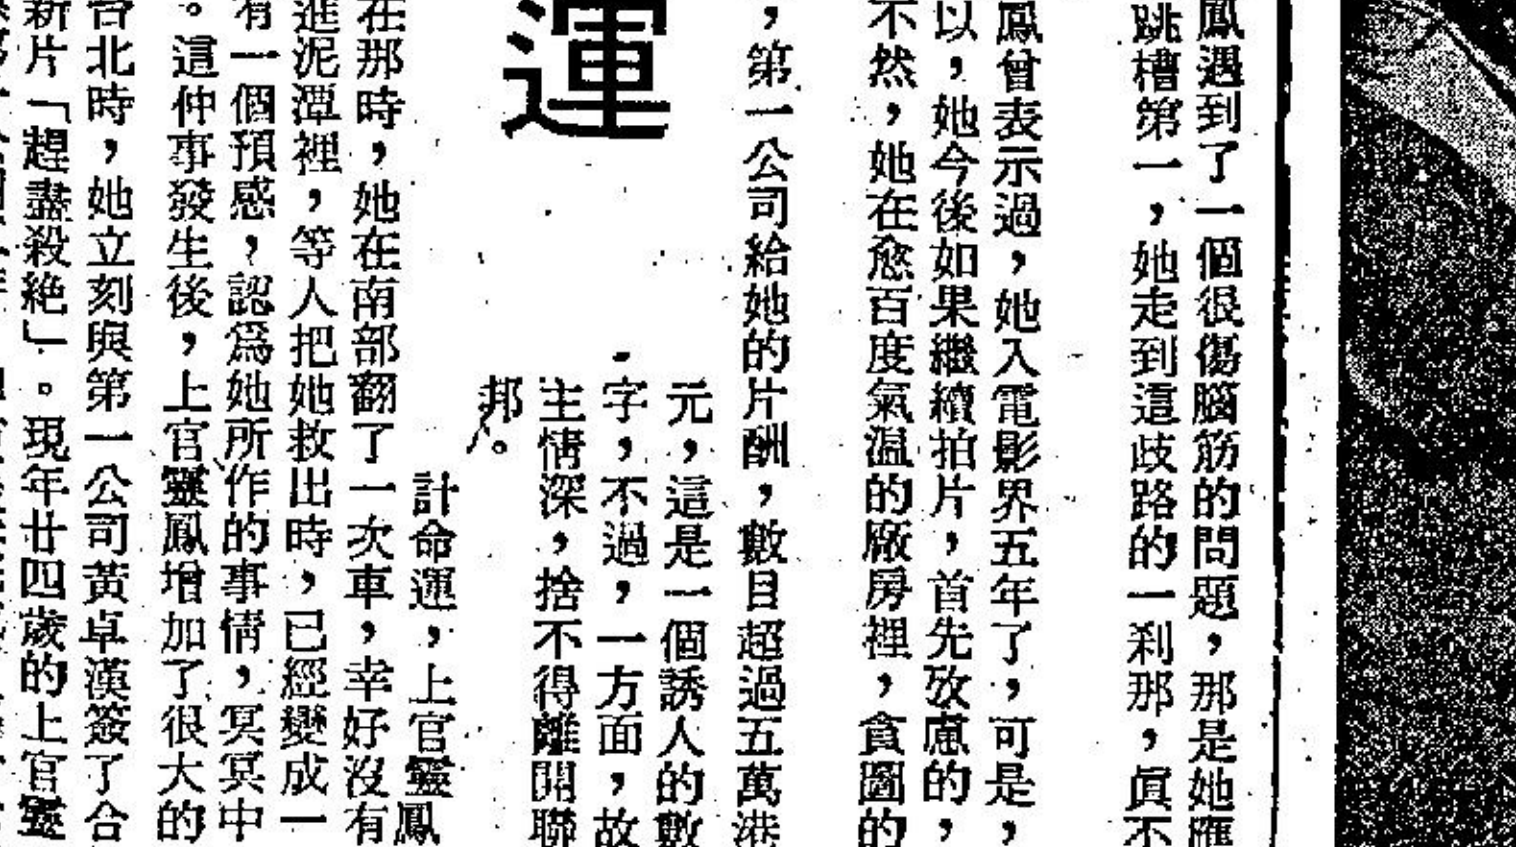 鳳遇到了一個很傷腦筋的問題，那是她應
跳槽第一，她走到這歧路的一刹那，眞不
鳳曾表示過，她入電影界五年了，可是，
以，她今後如果繼續拍片，首先攷慮的，
不然，她在愈百度氣温的廠房裡，貪圖的
，第一公司給她的片酬，數目超過五萬港
元，這是一個誘人的數
字，不過，一方面，故
主情深，捨不得離開聯
邦。
運
計命運，上官靈鳳
在那時，她在南部翻了一次車，幸好沒有
進泥潭裡，等人把她救出時，已經變成一
有一個預感，認爲她所作的事情，冥冥中
。這件事發生後，上官靈鳳增加了很大的
台北時，她立刻與第一公司黃卓漢簽了合
新片「趕盡殺絶」。現年廿四歲的上官靈